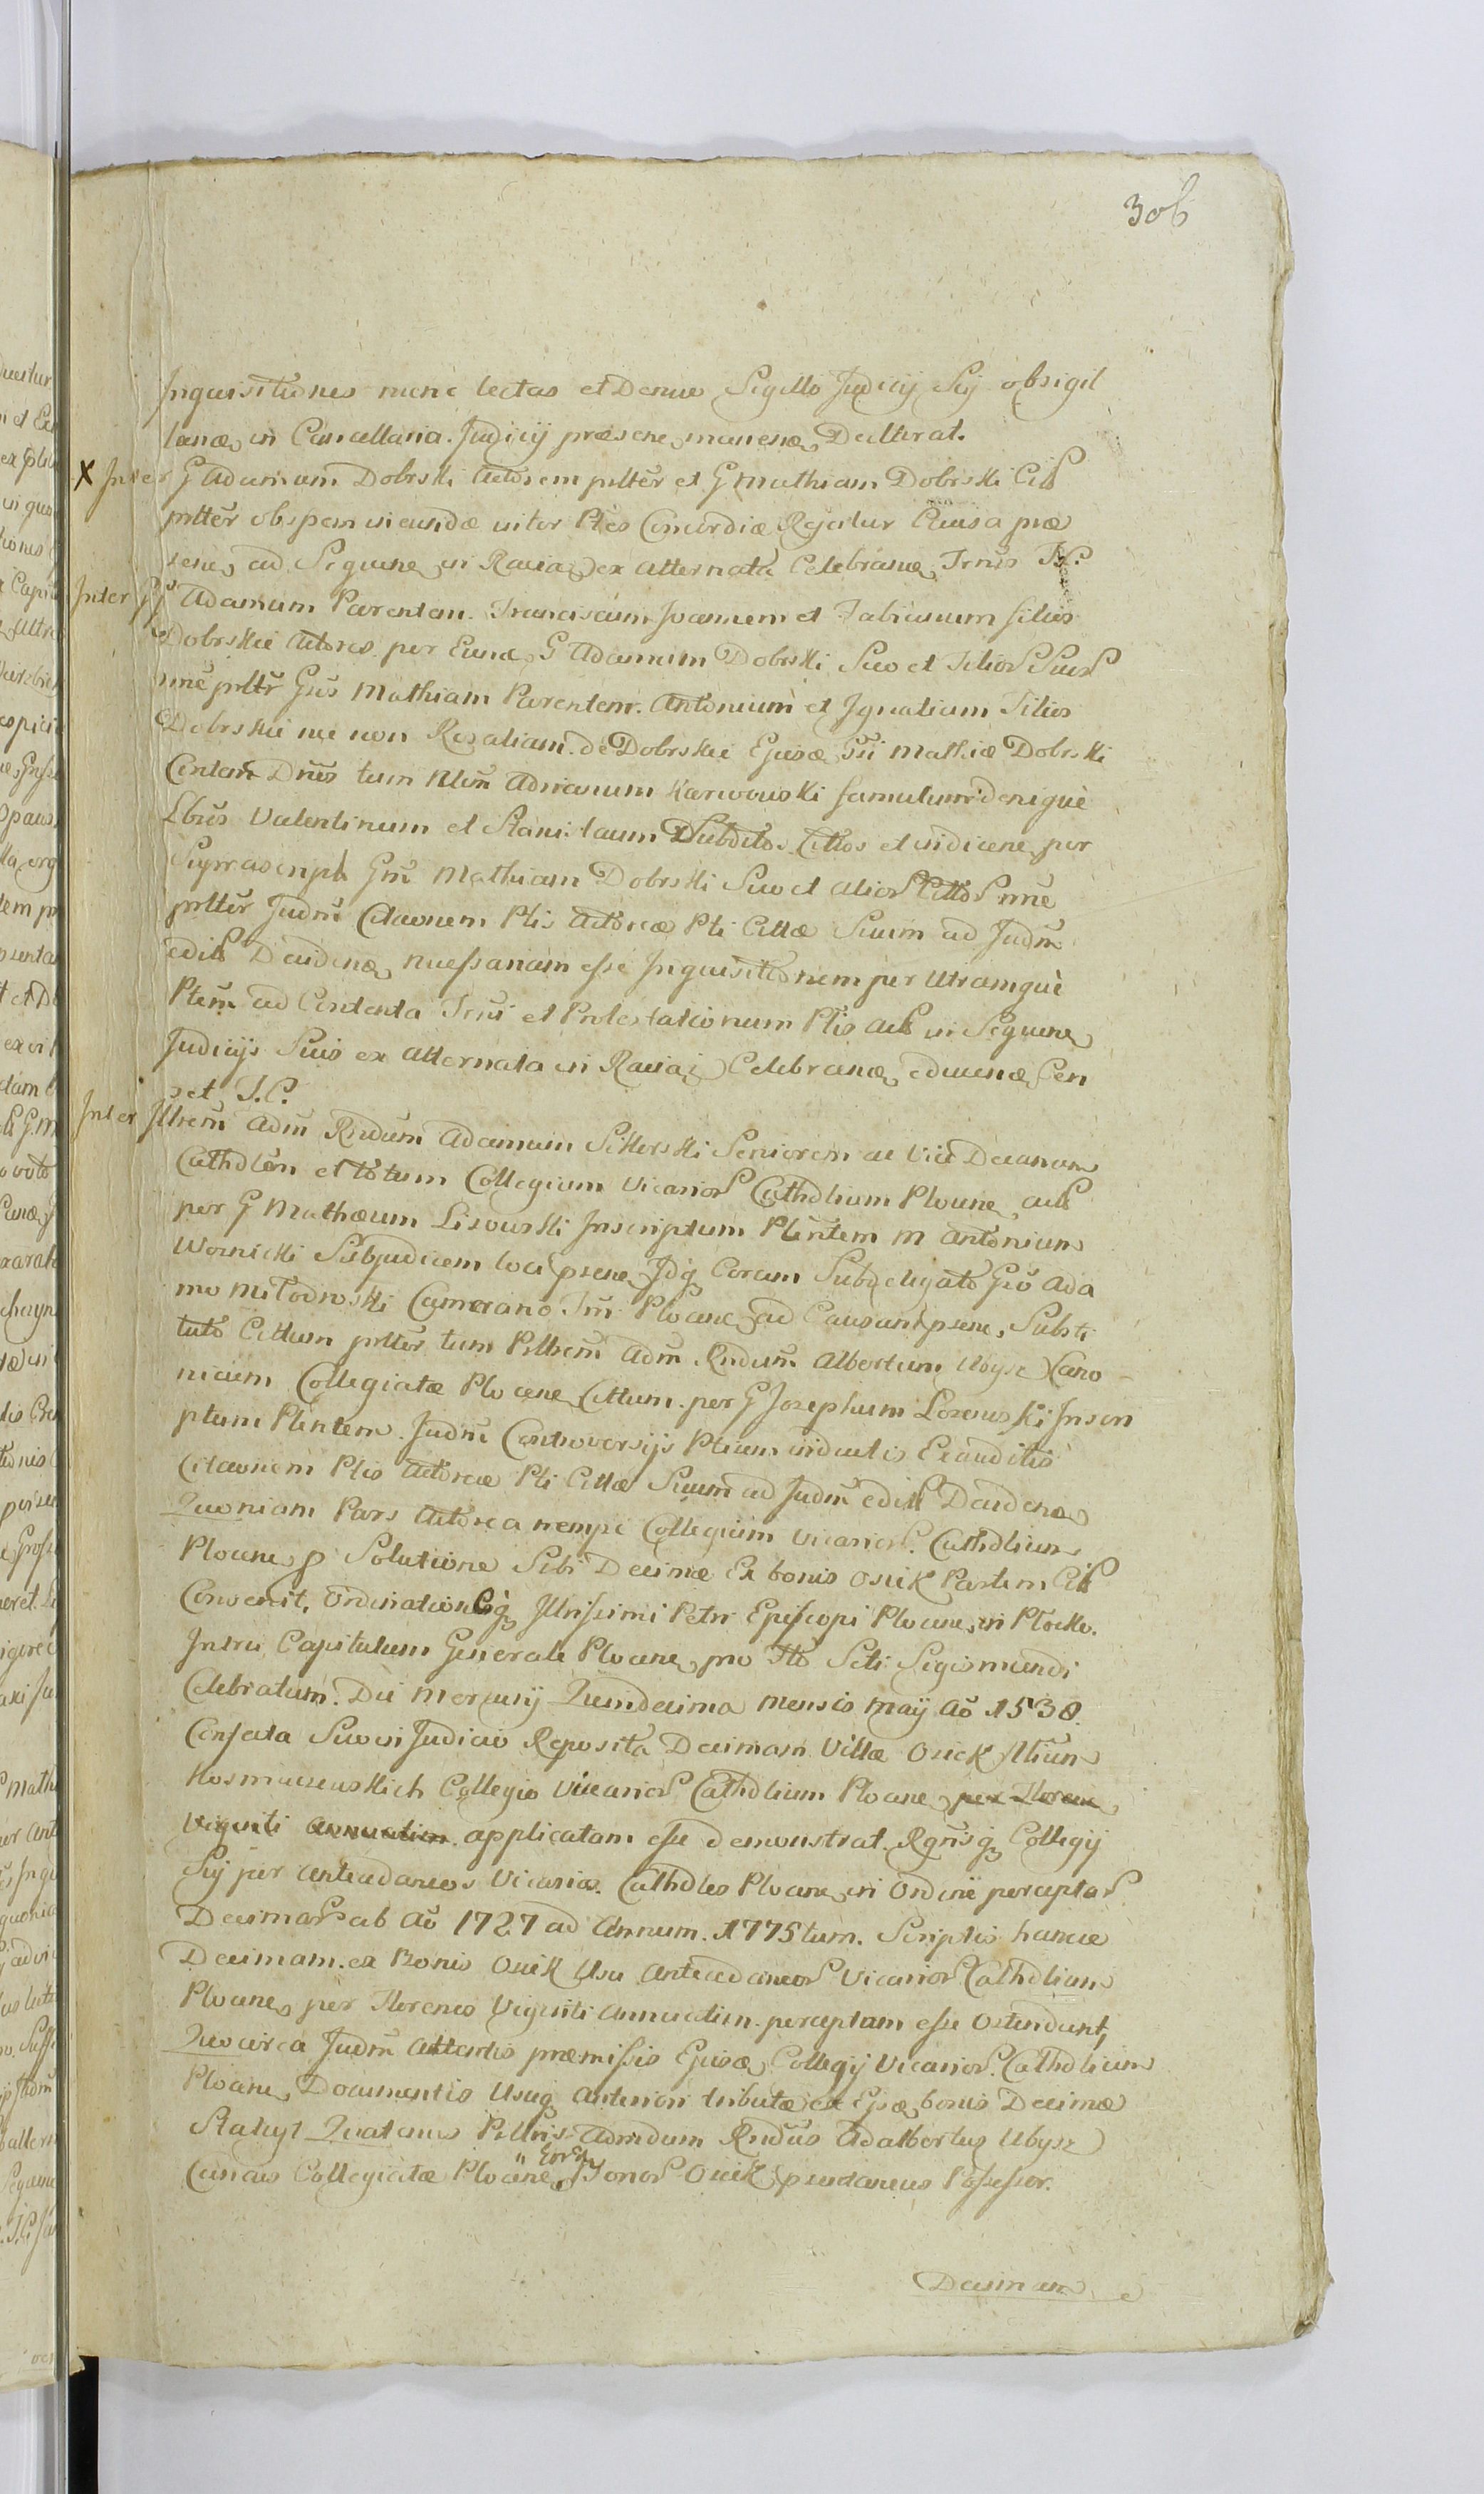 306
Inquisitiones nunc lectas et Denuo Sigillo Judicij Sij obsigil
landas in Cancellaria Judicij præsen manen Decernat.
X Inter G Adamum Dobrski Actorem plter et G Mathiam Dobrski Cit
pltter ob spem ineundæ inter Ptes Concordiæ Rejicitur Causa præ
sens ad Sequen in Raciąż ex alternata Celebran Trnis J.C.
Inter GG Adamum Parentem Franciscum Joannem et Fabianum filios
Dobrskie Actores per Eund G Adamum Dobrski Suo et Filior Suor
nne pltr Gsos Mathiam Parentem Antonium et Ignatium Filios
Dobrskie nec non Rosaliam de Dobrskie Ejusd Gsi Mathiæ Dobrski
Contem Dnos tum Nlem Adrianum Karwowski famulum denique
Lbros Valentinum et Stanislaum Subditos Cittos et indicen per
Suprascript Gm Mathiam Dobrski Suo et alior Cittor nne
pltter Judm Citaonem Ptis Actoreæ Pti Cittæ Suum ad Judm
edit Decidend necessariam esse Inquisitionem per Utramque
Ptem ad Contenta Trni et Protestationum Ptis Act in Sequen
Judicijs Suis ex alternata in Raciąż Celebrand educend Cen
set J.C.
Inter Illrem Adm Rndum Adamum Sikorski Seniorem ac Vice Decanum
Cathdlem et totum Collegium Vicarior Cathdlium Plocen act
per G Mathæum Lisowski Inscriptum Plentem M Antonium
Woznicki Subjudicem loci psens Jdq Coram Subdelegato Gso Ada
mo Młodnoski Camerario Trm Plocen ad Causam psen Substi
tuto Cittum pltter tum Pllrem Adm Rndum Albertum Ubysz Cano
nicum Collegiatæ Plocen Cittum per G Josephum Lozewski Inscri
ptum Plentem Judm Controversijs Ptium inductis Exauditis
Citaonem Ptis Actoreæ Pti Cittæ Suum ad Judm edit Decidendo
Quoniam Pars Actorea nempe Collegium Vicarior Cathdlium
Plocen p Solutione Sibi Decimæ Ex bonis Osiek Partem Cit
Convenit, Ordinationeq Illrissimi Petri Episcopi Plocen in Płocko
Intra Capitulum Generale Plocen pro Fto Scti Sigismundi
Celebratum Die Mercurij Quindecima Mensis Maij Ao 1538.
Confecta Suo in Judicio Reposita Decimam Villæ Osiek
Collegio Vicarior Cathdlium Plocen per Floren
Viginti annuatim applicatam esse demonstrat Collegij
Sij per antecedaneos Vicarios Cathdles Plocen in Ordine perceptar
Decimar ab Ao 1727 ad Annum 1775 tum. Scriptis hancce
Decimam ex Bonis Osiek Usu antecedaneor Vicarior Cathdlium
Plocen per Florenos Viginti annuatim perceptam esse Ostendunt,
Quocirca Judm attentis præmissis Ejusd Collegij Vicarior Cathdlium
Plocen Documentis Usuq anteriori tributæ ex Ijsd bonis Decimæ
Statuyt Quatenus Pllris Admdum Rndus Adalbertus Ubysz
Cancus Collegiatæ Plocen Bonor Osiek psentaneus Possessor.
Decimam